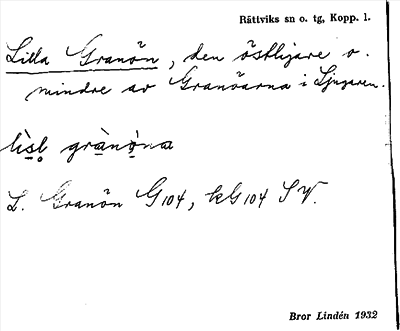 Rättviks sn o. tg, Kopp. l.
Lilla Granön, den östligare o.
mindre av Granöarna i Ljugaren.
lìsl̥ grànọ̀na
L. Granön G104, kG104 SV.
Bror Lindén 1932